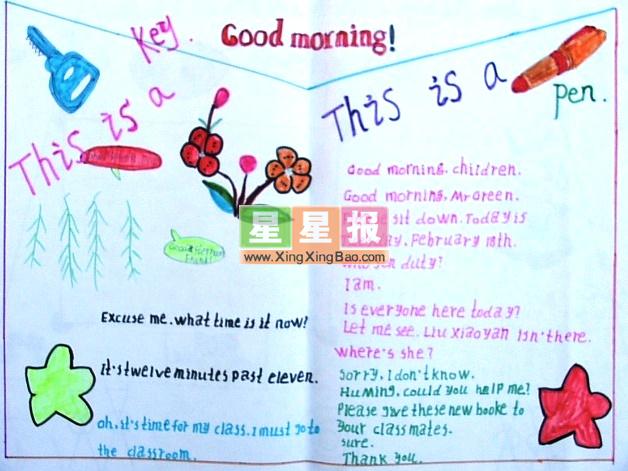 Good morning!
Key.
This is a
This is a
pen.
星星报
www.XingXingBao.com
Excuse me. what time is it now?
It's twelve minutes past eleven.
oh. it's time for my class. I must go to
the classroom.
Good morning. children.
Good morning. Mr Green.
sit down. Today is
February 18th.
duty?
I am.
Is everyone here today?
Let me see. Liu Xiaoyan isn't there.
where's she?
Sorry. I don't know.
HuMing. could you help me?
Please give these new booke to
your classmates.
sure.
Thank you.